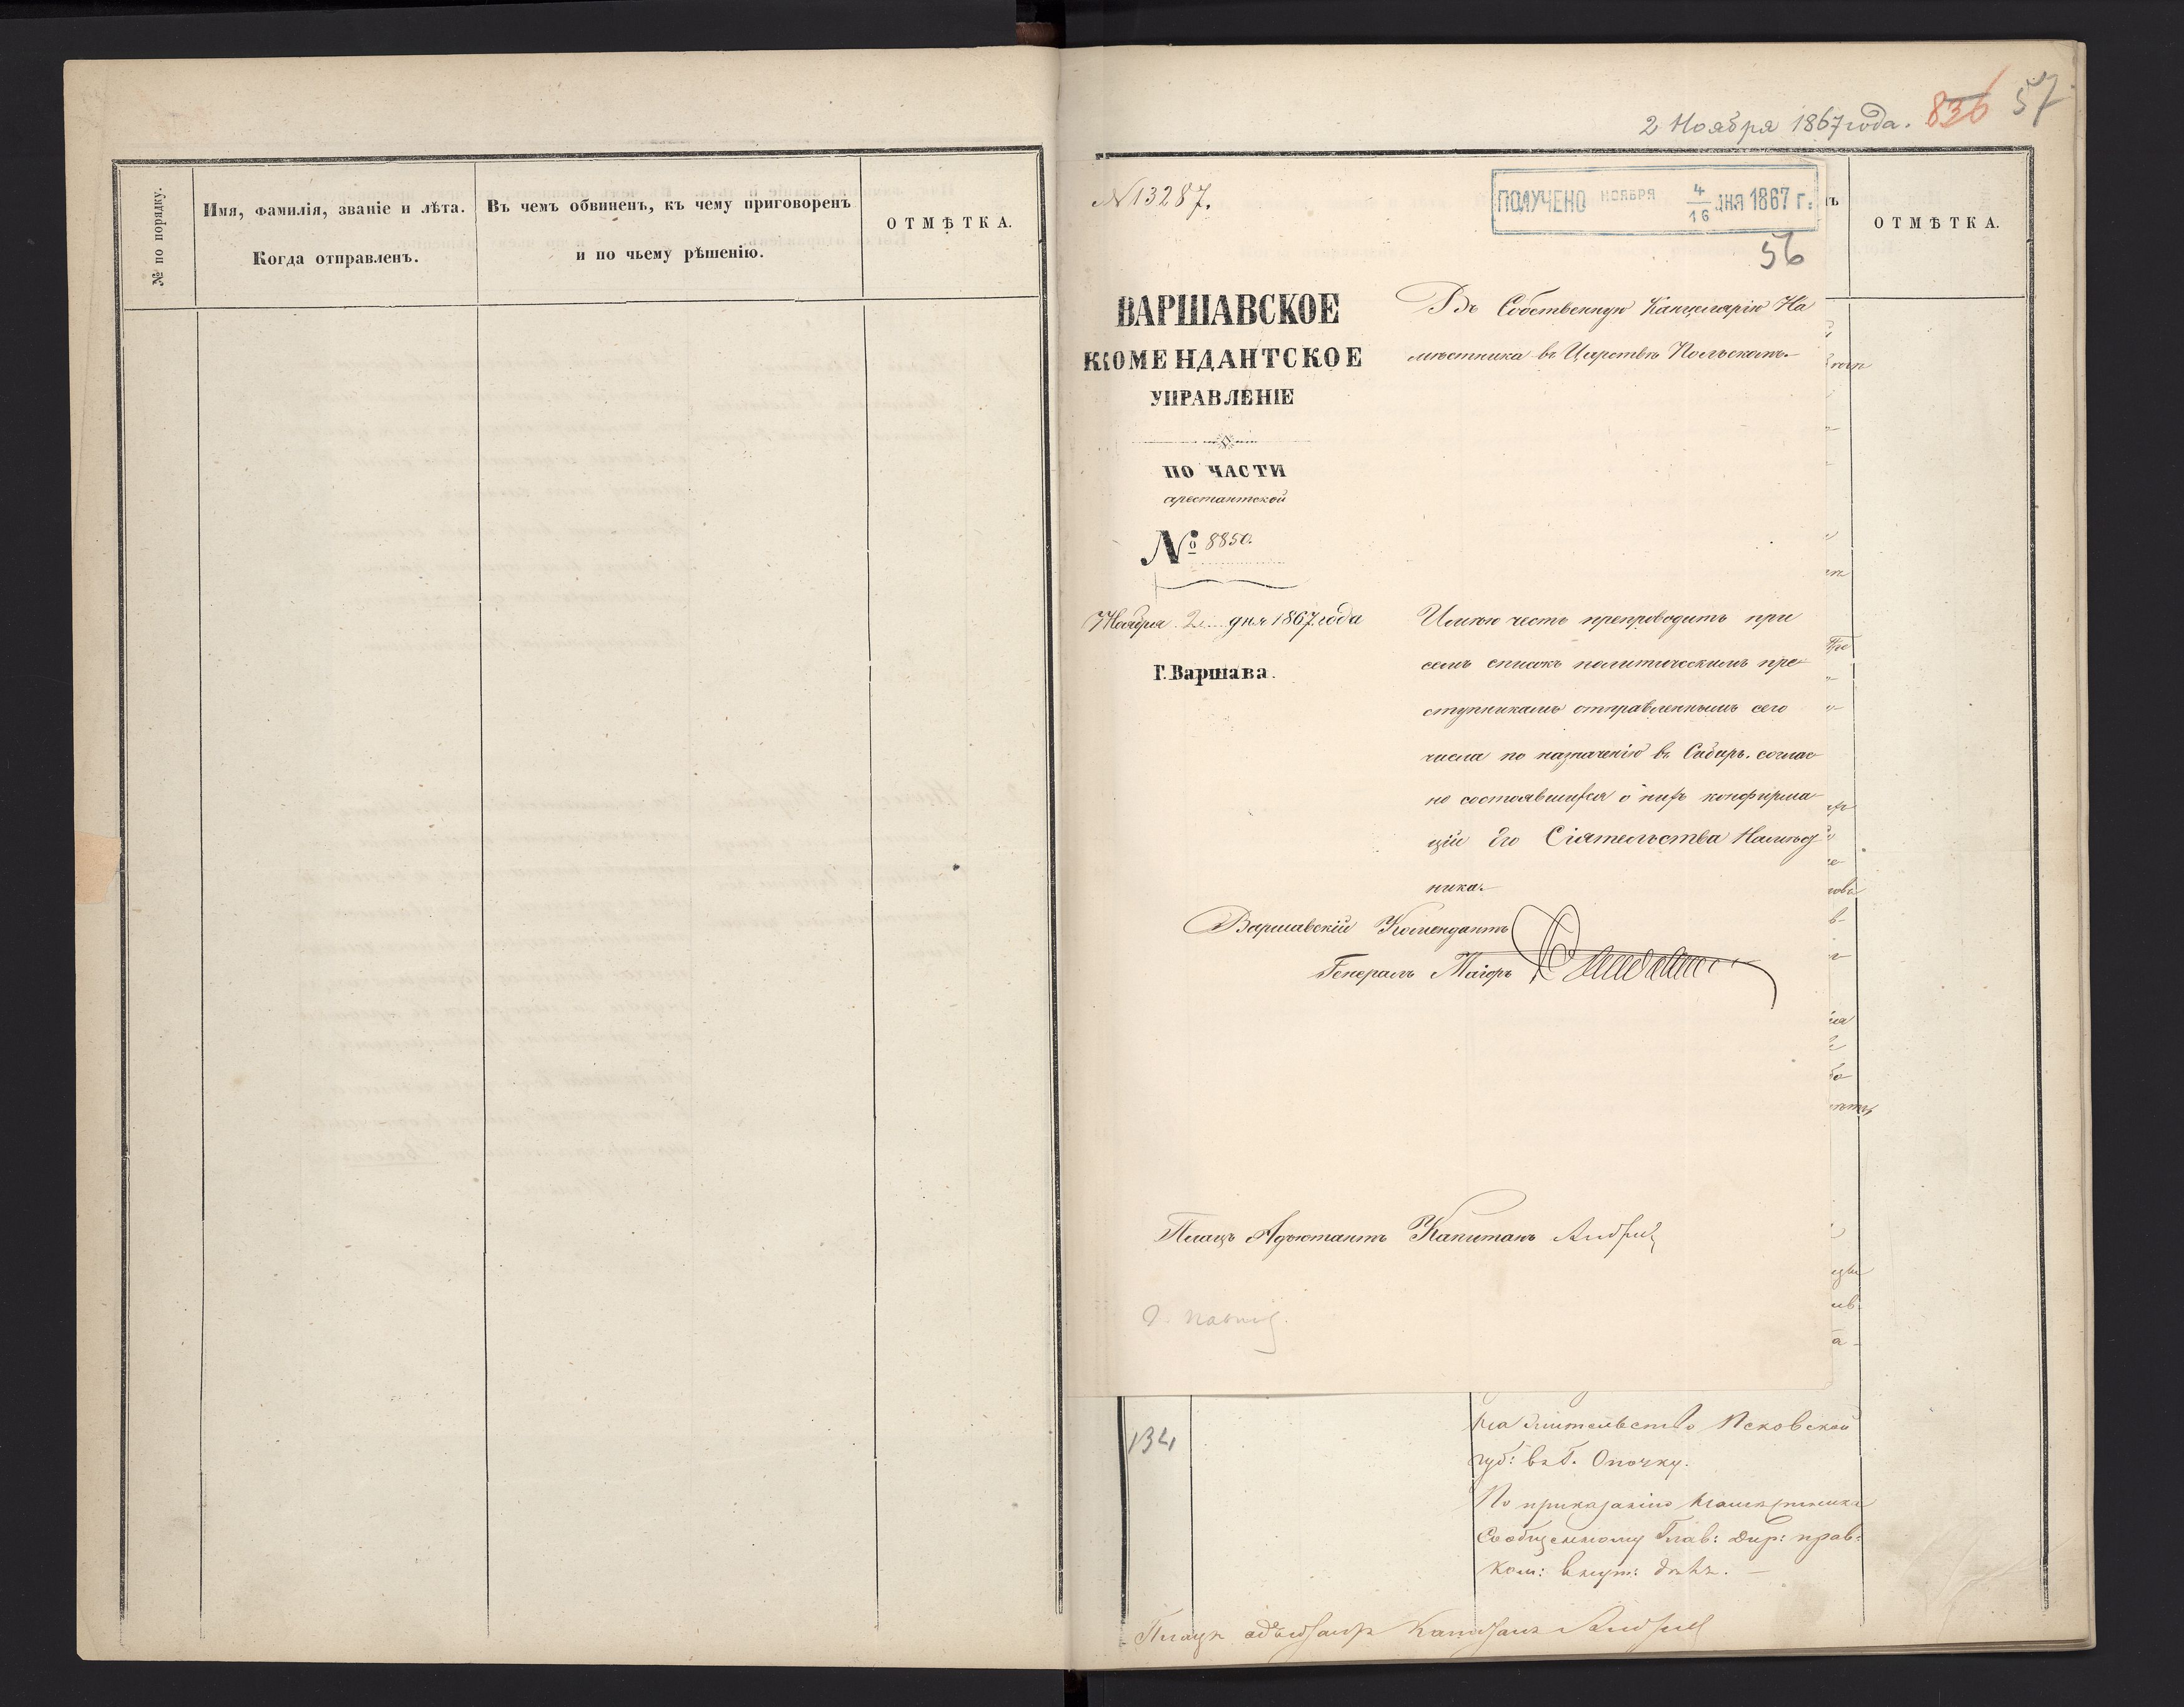 № по порядку.
Имя, фамилія, званіе и лѣта.
Когда отправленъ.
Въ чемъ обвиненъ, къ чему приговоренъ
и по чьему рѣшенію.
ОТМѢТКА.
2 Ноября 1867 года. 836 57
ОТМѢТКА.
№ 13287.
ПОЛУЧЕНО НОЯБРЯ 4/16 ДНЯ 1867 г.
56
ВАРШАВСКОЕ
КОМЕНДАНТСКОЕ
УПРАВЛЕНІЕ
ПО ЧАСТИ
арестантской
№ 8850.
Ноября 2 дня 1867 года
Г. Варшава.
Въ Собственную Канцелярію На
мѣстника въ Царствѣ Польскомъ.
Имѣю честь препроводить при
семъ списокъ политическимъ пре-
ступникамъ отправленнымъ сего
числа по назначенію въ Сибирь. соглас
но состоявшихся о нихъ конфирма-
ціи Его Сіятельства Намѣст
ника.
Варшавскій Комендантъ
Генералъ Маіоръ
Плацъ Адъютантъ Капитанъ
134
на жительство Псковской
губ: въ г. Опочку.
По приказанію Намѣстника
Сообщенному Глав: Дир: прав:
Ком: внут: дѣлъ. —
Плацъ адъютантъ Капитанъ